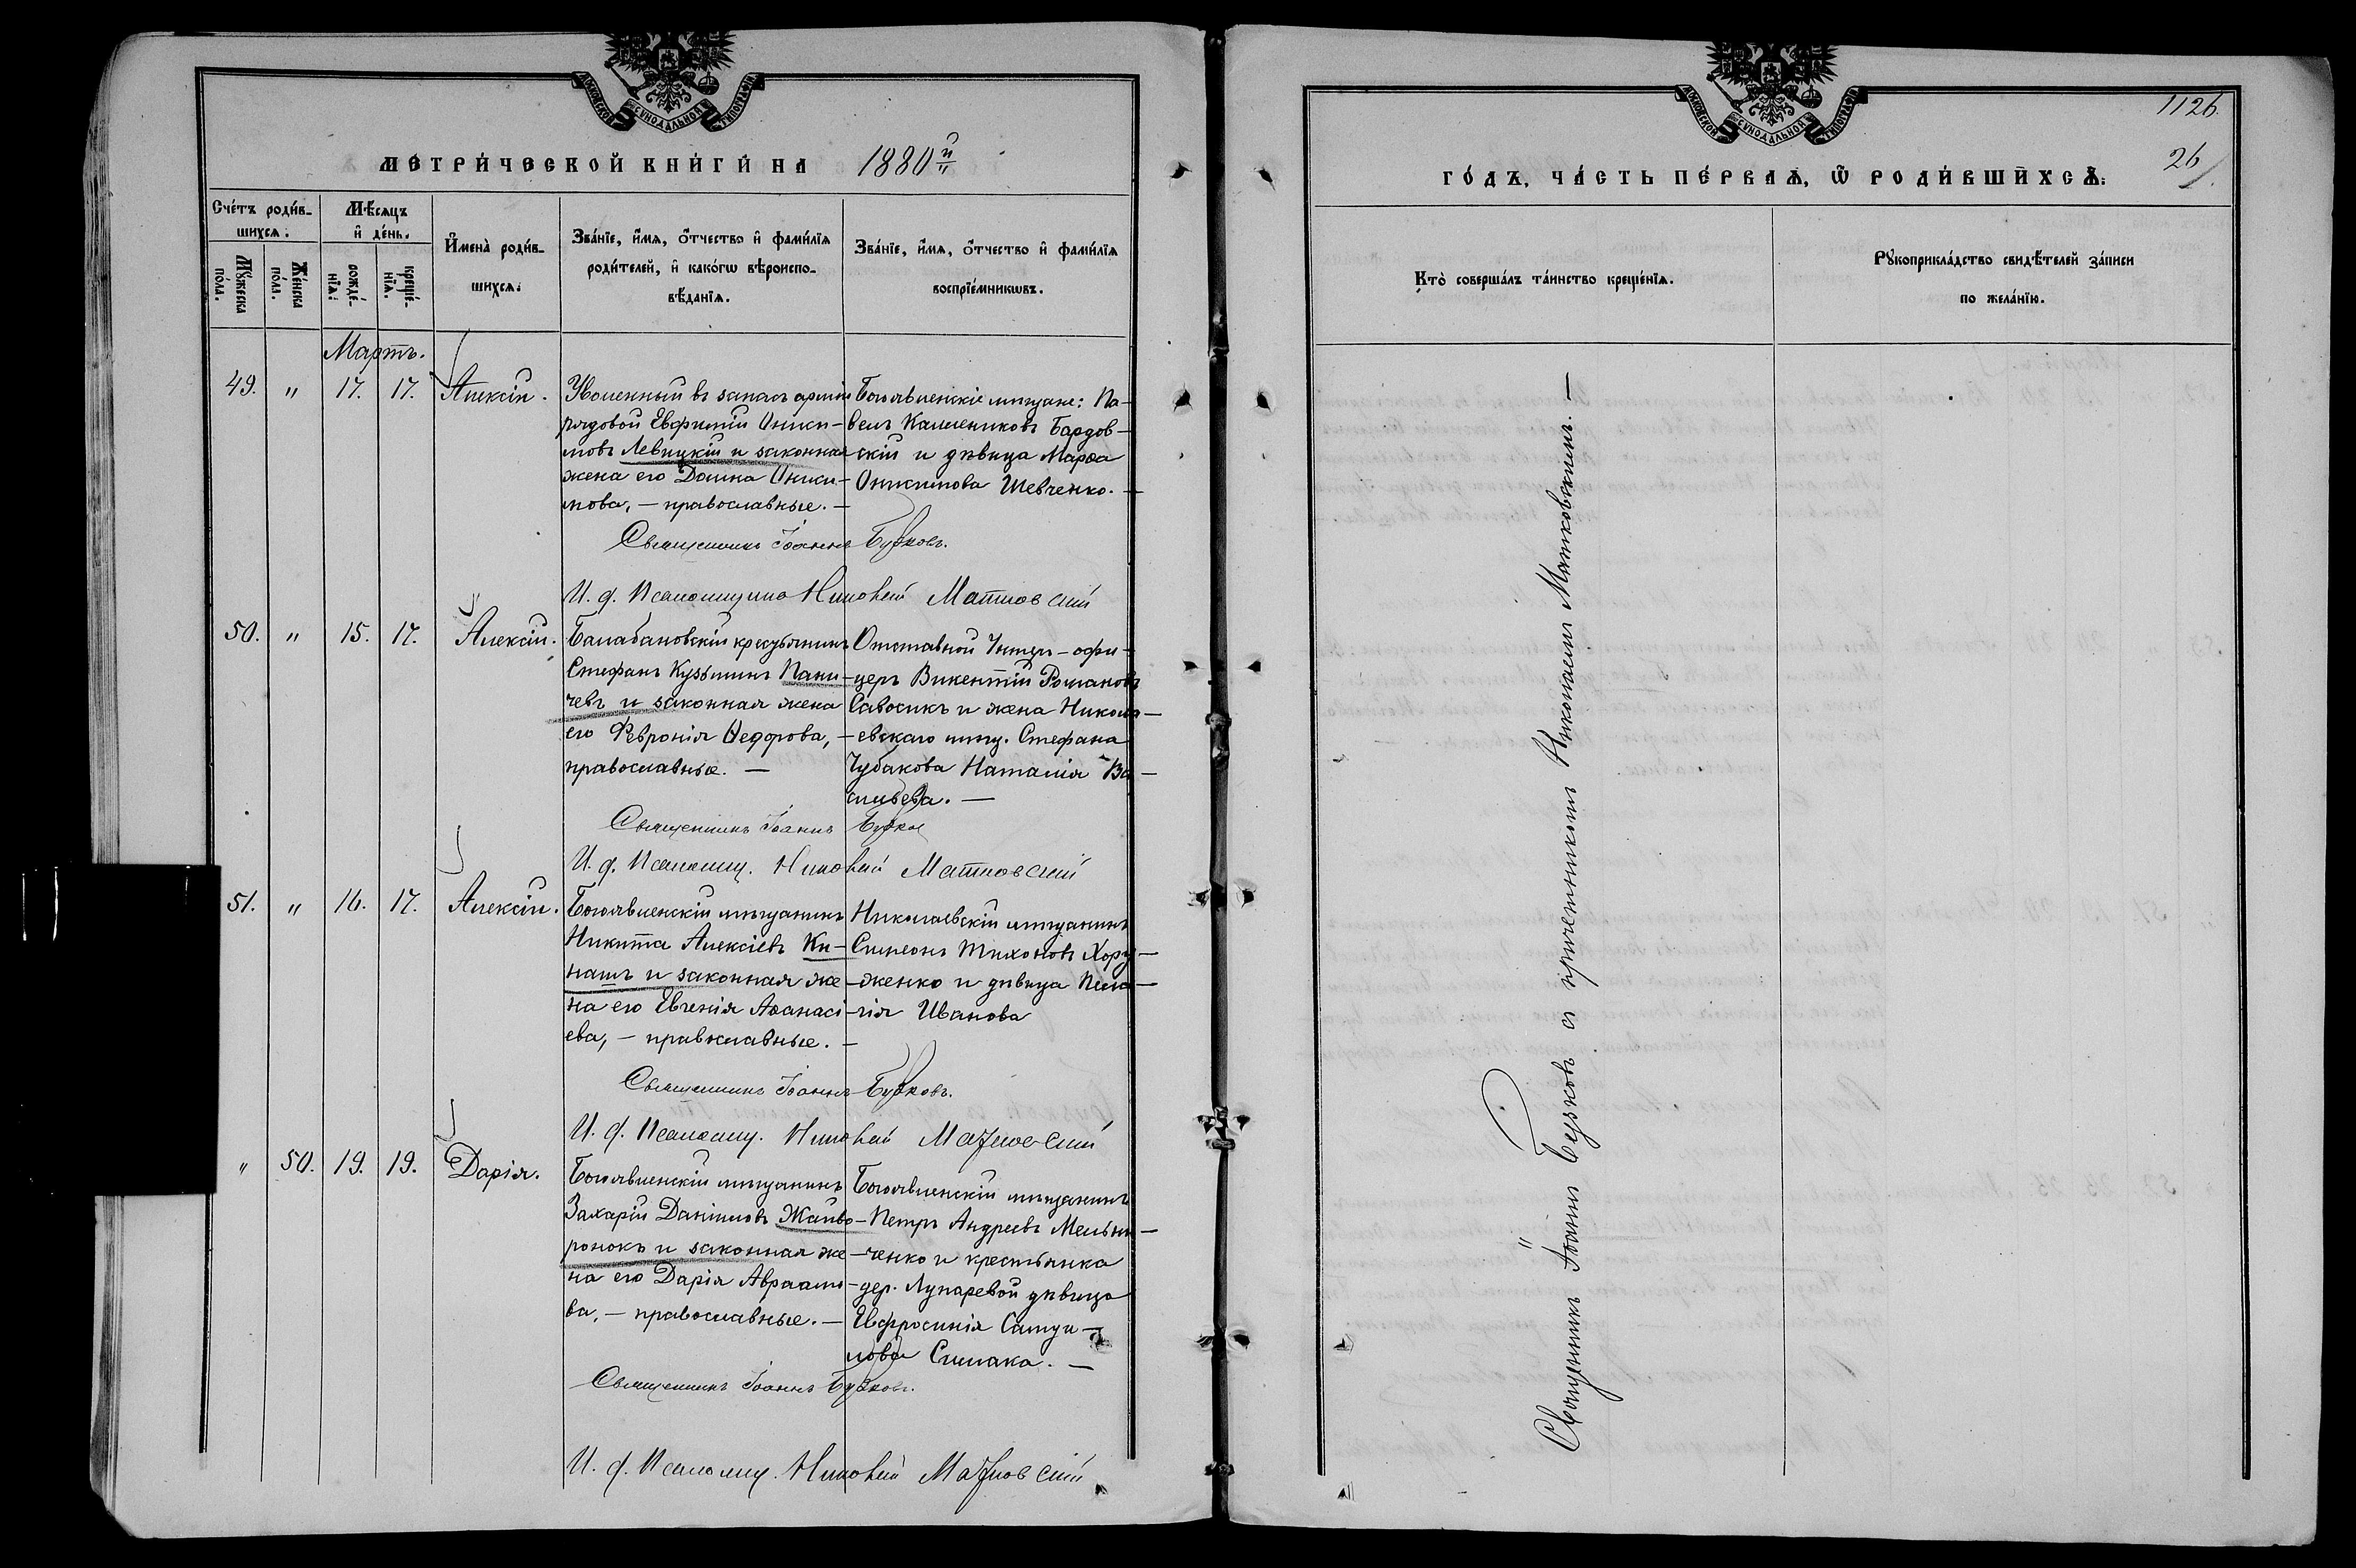 МОСКОВСКОЙ СѴНОДАЛЬНОЙ ТИПОГРАФІИ
МЕТРИ́ЧЕСКОЙ КНИ́ГИ НА 1880й
Сче́тъ роди́в-
шихсѧ.
Мѣ́сѧцъ
и҆ де́нь.
Мꙋ́жеска
по́ла.
Же́нска
по́ла.
рожде́-
нїѧ.
креще́-
нїѧ.
И҆мена̀ роди́в-
шихсѧ.
Зва́нїе, и҆́мѧ, ѻ҆́тчество и҆ фами́лїѧ
роди́телей, и҆ како́гѡ вѣроиспо-
вѣ́данїѧ.
Зва́нїе, и҆́мѧ, ѻ҆́тчество и҆ фами́лїѧ
воспрїе́мникѡвъ.
Мартъ.
49. " 17. 17. Алексій.
Уволенный въ запасъ арміи
рядовой Евфимій Оники-
мовъ Левицкій и законная
жена его Домна Оники-
мова, — православные. —
Богоявленскіе мѣщане: Па-
велъ Калиниковъ Бардов-
скій и дѣвица Марѳа
Оникимова Шевченко. —
Священникъ Іоаннъ Бузковъ.
И. д. Псаломщика Николай Матковскій
50. " 15. 17. Алексій.
Балабановскій крестьянинъ
Стефанъ Кузьминъ Пани-
чевъ и законная жена
его Февронія Ѳедорова, —
православные. —
Отставной Унтеръ-офи-
церъ Викентій Романовъ
Савосикъ и жена Никола-
евскаго мѣщ. Стефана
Чубакова Наталія Ва-
сильева. —
Священникъ Іоаннъ Бузков
И. д. Псаломщ. Николай Матковскій
51. " 16. 17. Алексій.
Богоявленскій мѣщанинъ
Никита Алексіевъ Ки-
нашъ и законная же-
на его Евгенія Аѳанасі-
ева, — православные. —
Николаевскій мѣщанинъ
Симеонъ Тихоновъ Хору-
женко и дѣвица Пела-
гія Иванова
Священникъ Іоаннъ Бузковъ.
И. д. Псаломщ. Николай Матковскій
" 50. 19. 19. Дарія.
Богоявленскій мѣщанинъ
Захарій Даніиловъ Жайво-
ронокъ и законная же-
на его Дарія Авраамо-
ва, — православные. —
Богоявленскій мѣщанинъ
Петръ Андреевъ Мельни-
ченко и крестьянка
дер. Лупаревой дѣвица
Евфросинія Самуи-
лова Симака. —
Священникъ Іоаннъ Бузковъ.
И. д. Псаломщ. Николай Матковскій
МОСКОВСКОЙ СѴНОДАЛЬНОЙ ТИПОГРАФІИ
1126.
26
ГО́ДЪ, ЧА́СТЬ ПЕ́РВАѦ, Ѿ РОДИ́ВШИХСѦ:
Кто̀ соверша́лъ та́инство креще́нїѧ.
Рꙋкоприкла́дство свидѣ́телей за́писи
по жела́нїю.
Священникъ Іоаннъ Бузковъ съ причетникомъ Николаемъ Матковскимъ. —